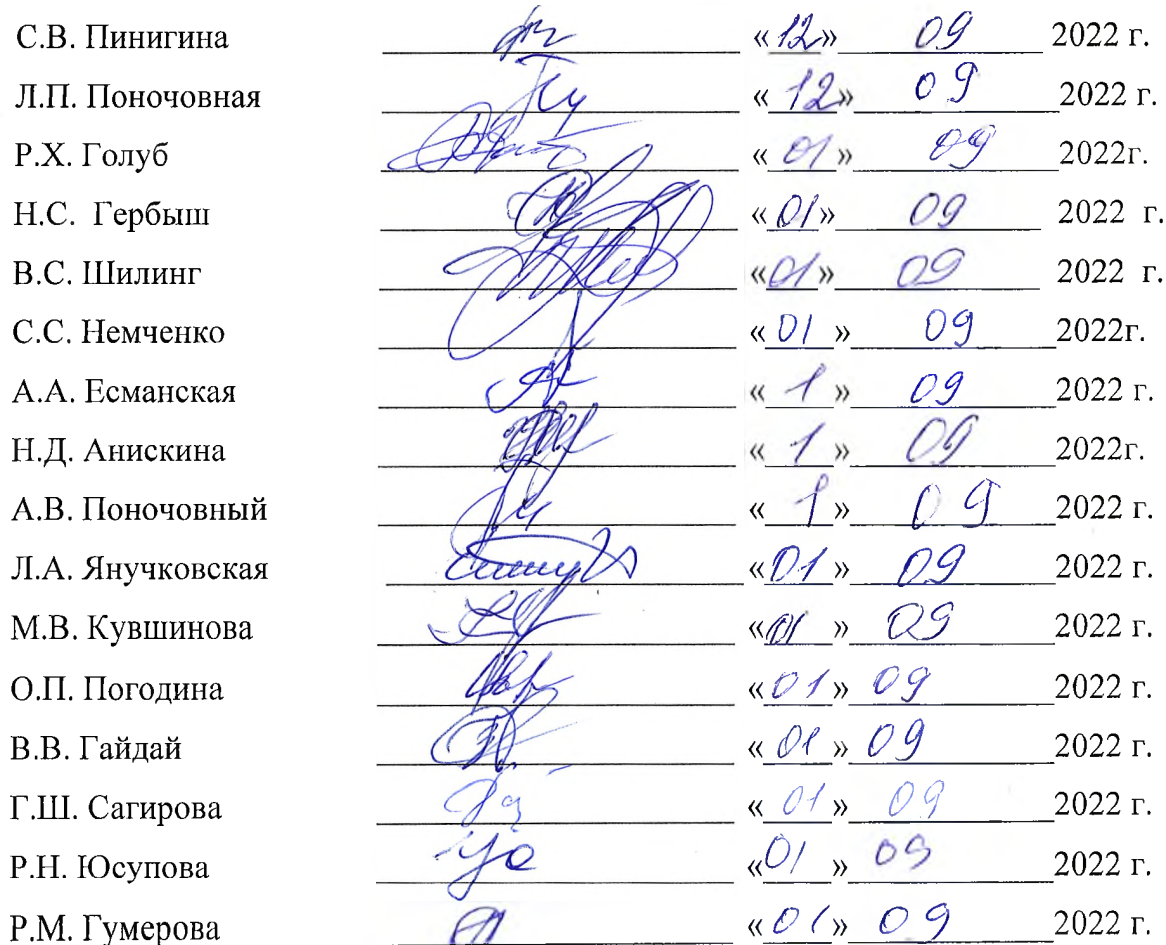 С.В. Пинигина «12» 09 2022 г.
Л.П. Поночовная «12» 09 2022 г.
Р.Х. Голуб «01» 09 2022г.
Н.С. Гербыш «01» 09 2022 г.
В.С. Шилинг «01» 09 2022 г.
С.С. Немченко «01» 09 2022г.
А.А. Есманская «1» 09 2022 г.
Н.Д. Анискина «1» 09 2022г.
А.В. Поночовный «1» 09 2022 г.
Л.А. Янучковская «01» 09 2022 г.
М.В. Кувшинова «01» 09 2022 г.
О.П. Погодина «01» 09 2022 г.
В.В. Гайдай «01» 09 2022 г.
Г.Ш. Сагирова «01» 09 2022 г.
Р.Н. Юсупова «01» 09 2022 г.
Р.М. Гумерова «01» 09 2022 г.